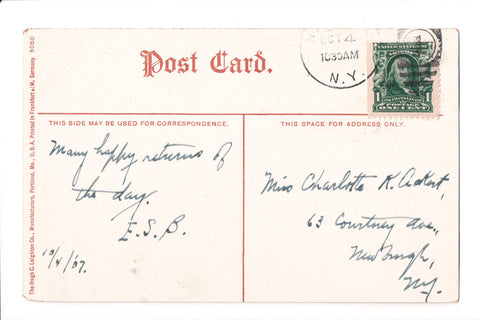 Post Card.
OCT 4
1030AM
N.Y.
1
POSTAGE
ONE CENT
THIS SIDE MAY BE USED FOR CORRESPONDENCE.
THIS SPACE FOR ADDRESS ONLY.
Many happy returns of
the day.
E.S.B.
10/4/07.
Miss Charlotte K. Ackert,
63 Courtney Ave.,
Newburgh,
N.Y.
The Hugh C. Leighton Co., Manufacturers, Portland, Me., U.S.A. Printed in Frankfort a/M, Germany 5060